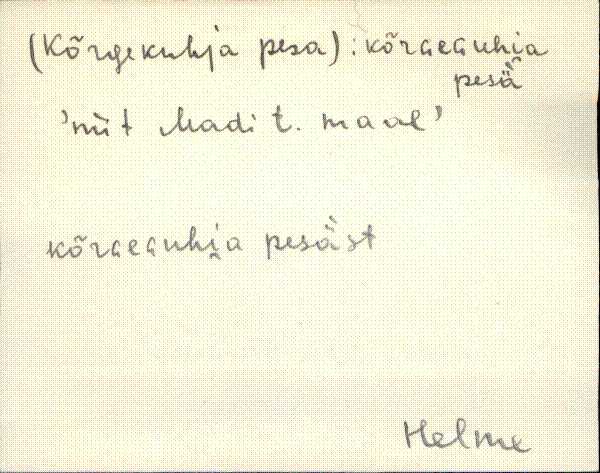 (Kõrgekuhja pesa): kõrɢeɢuhi̯a
pesä̀
'niit Madi t. maal'
kõrɢeɢuhi̯a pesä̀st
Helme